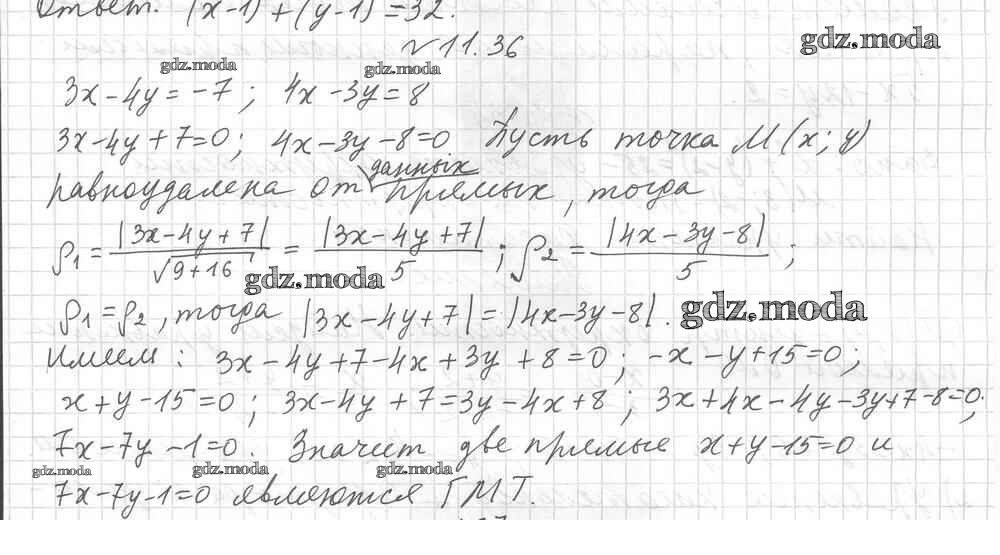 Ответ. (x-1)+(y-1)=32.
№11.36
gdz.moda
gdz.moda
gdz.moda
3x-4y=-7; 4x-3y=8
3x-4y+7=0; 4x-3y-8=0. Пусть точка M(x; y)
равноудалена от данных прямых, тогда
ρ₁ = |3x-4y+7| / √9+16 = |3x-4y+7| / 5 ; ρ₂ = |4x-3y-8| / 5 ;
gdz.moda
ρ₁=ρ₂, тогда |3x-4y+7|=|4x-3y-8|.
gdz.moda
Имеем: 3x-4y+7-4x+3y+8=0; -x-y+15=0;
x+y-15=0; 3x-4y+7=3y-4x+8; 3x+4x-4y-3y+7-8=0;
7x-7y-1=0. Значит две прямые x+y-15=0 и
gdz.moda
gdz.moda
gdz.moda
7x-7y-1=0 являются ГМТ.